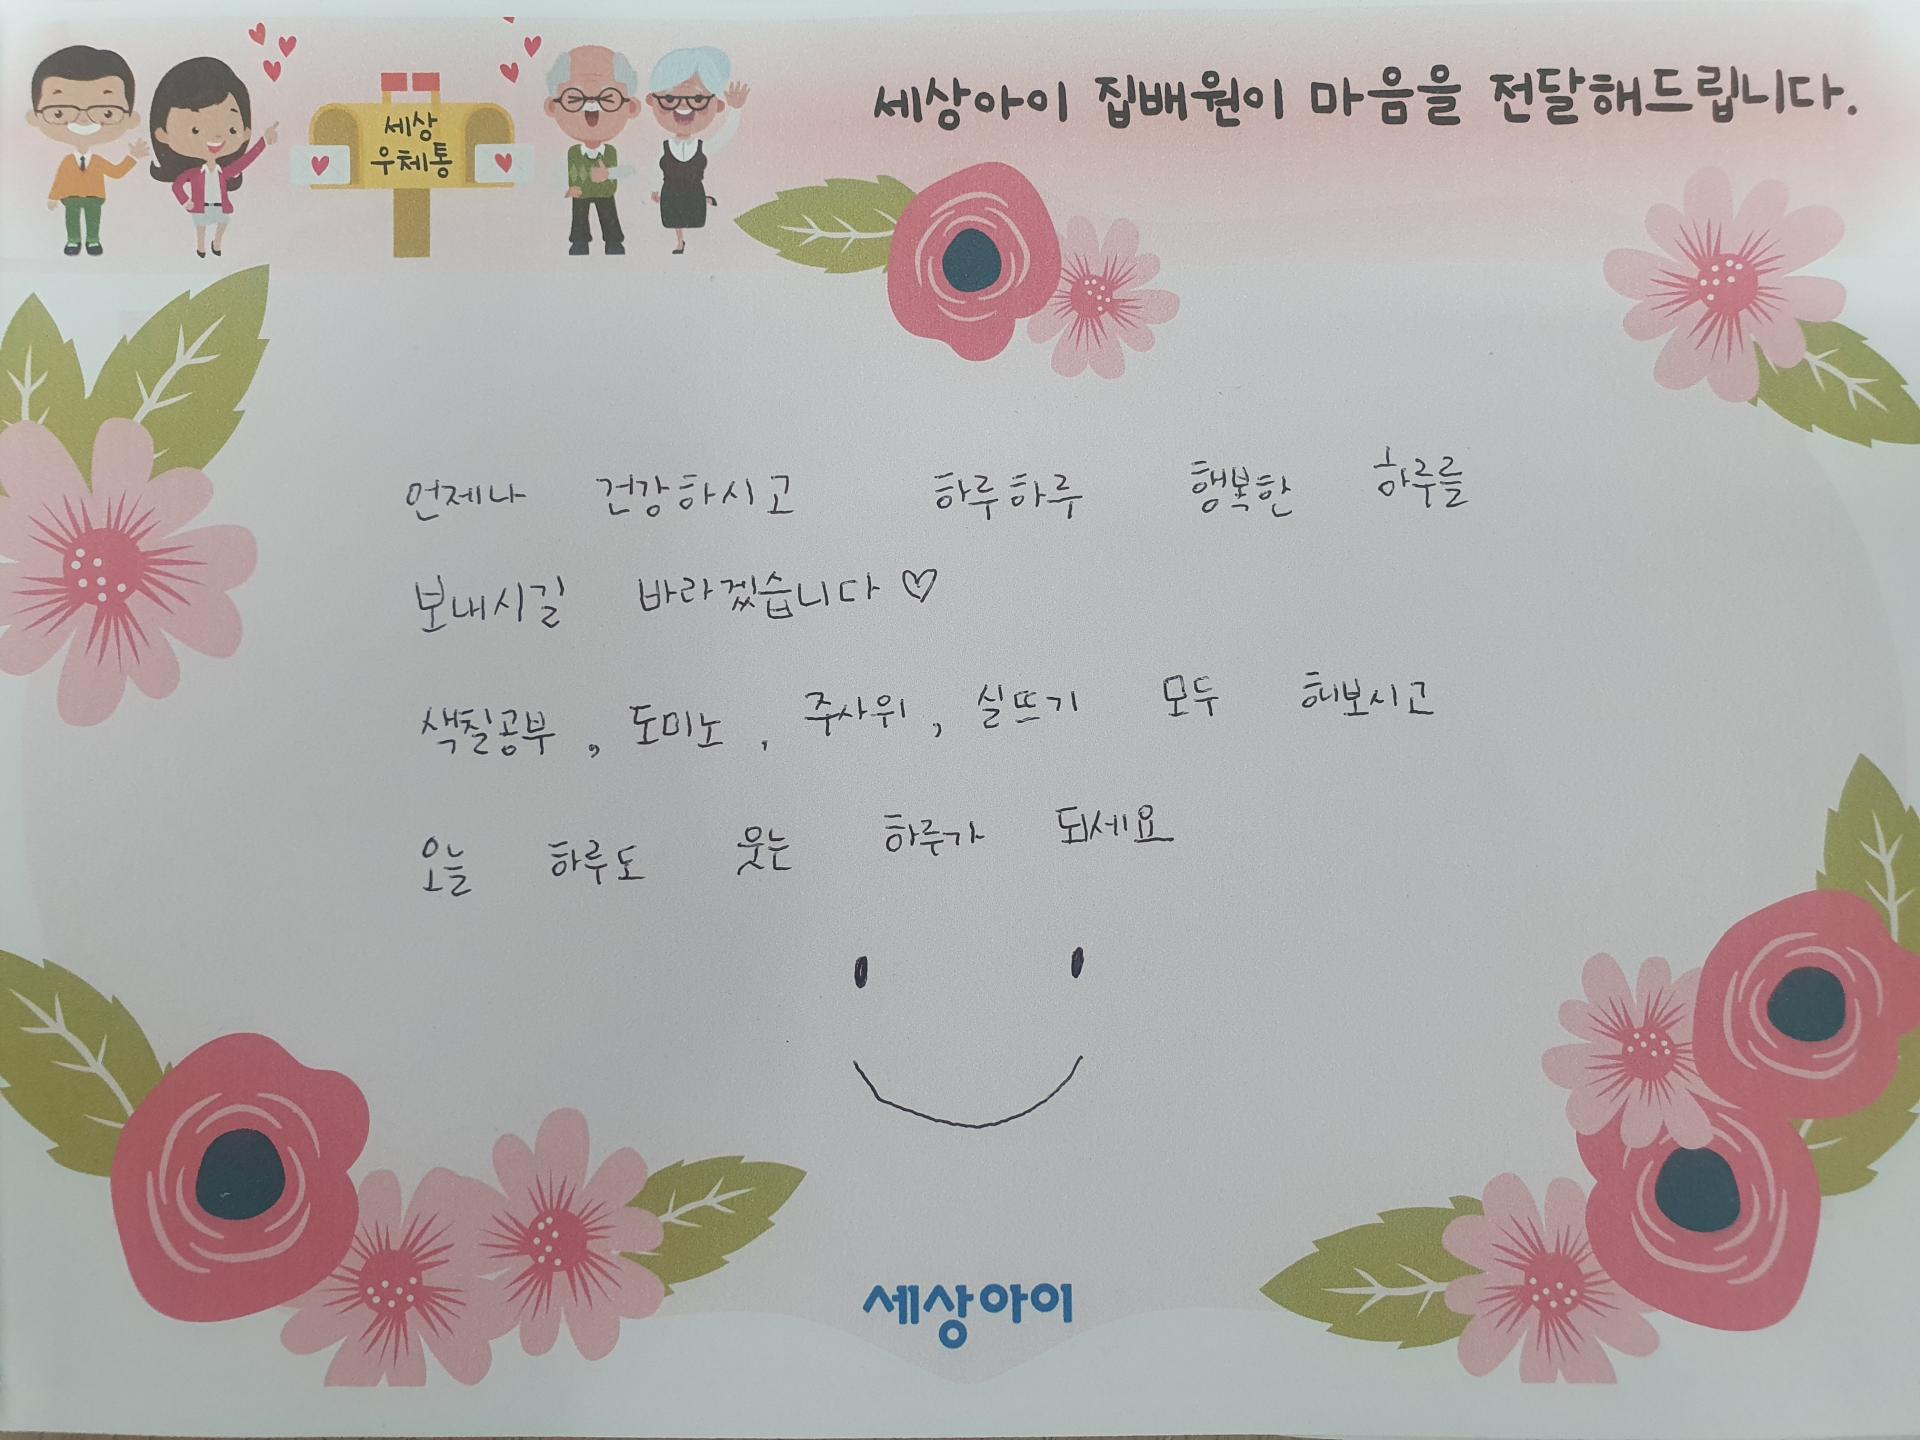 세상아이 집배원이 마음을 전달해드립니다.
세상
우체통
언제나 건강하시고 하루하루 행복한 하루를
보내시길 바라겠습니다♡
색칠공부, 도미노, 주사위, 실뜨기 모두 해보시고
오늘 하루도 웃는 하루가 되세요
세상아이